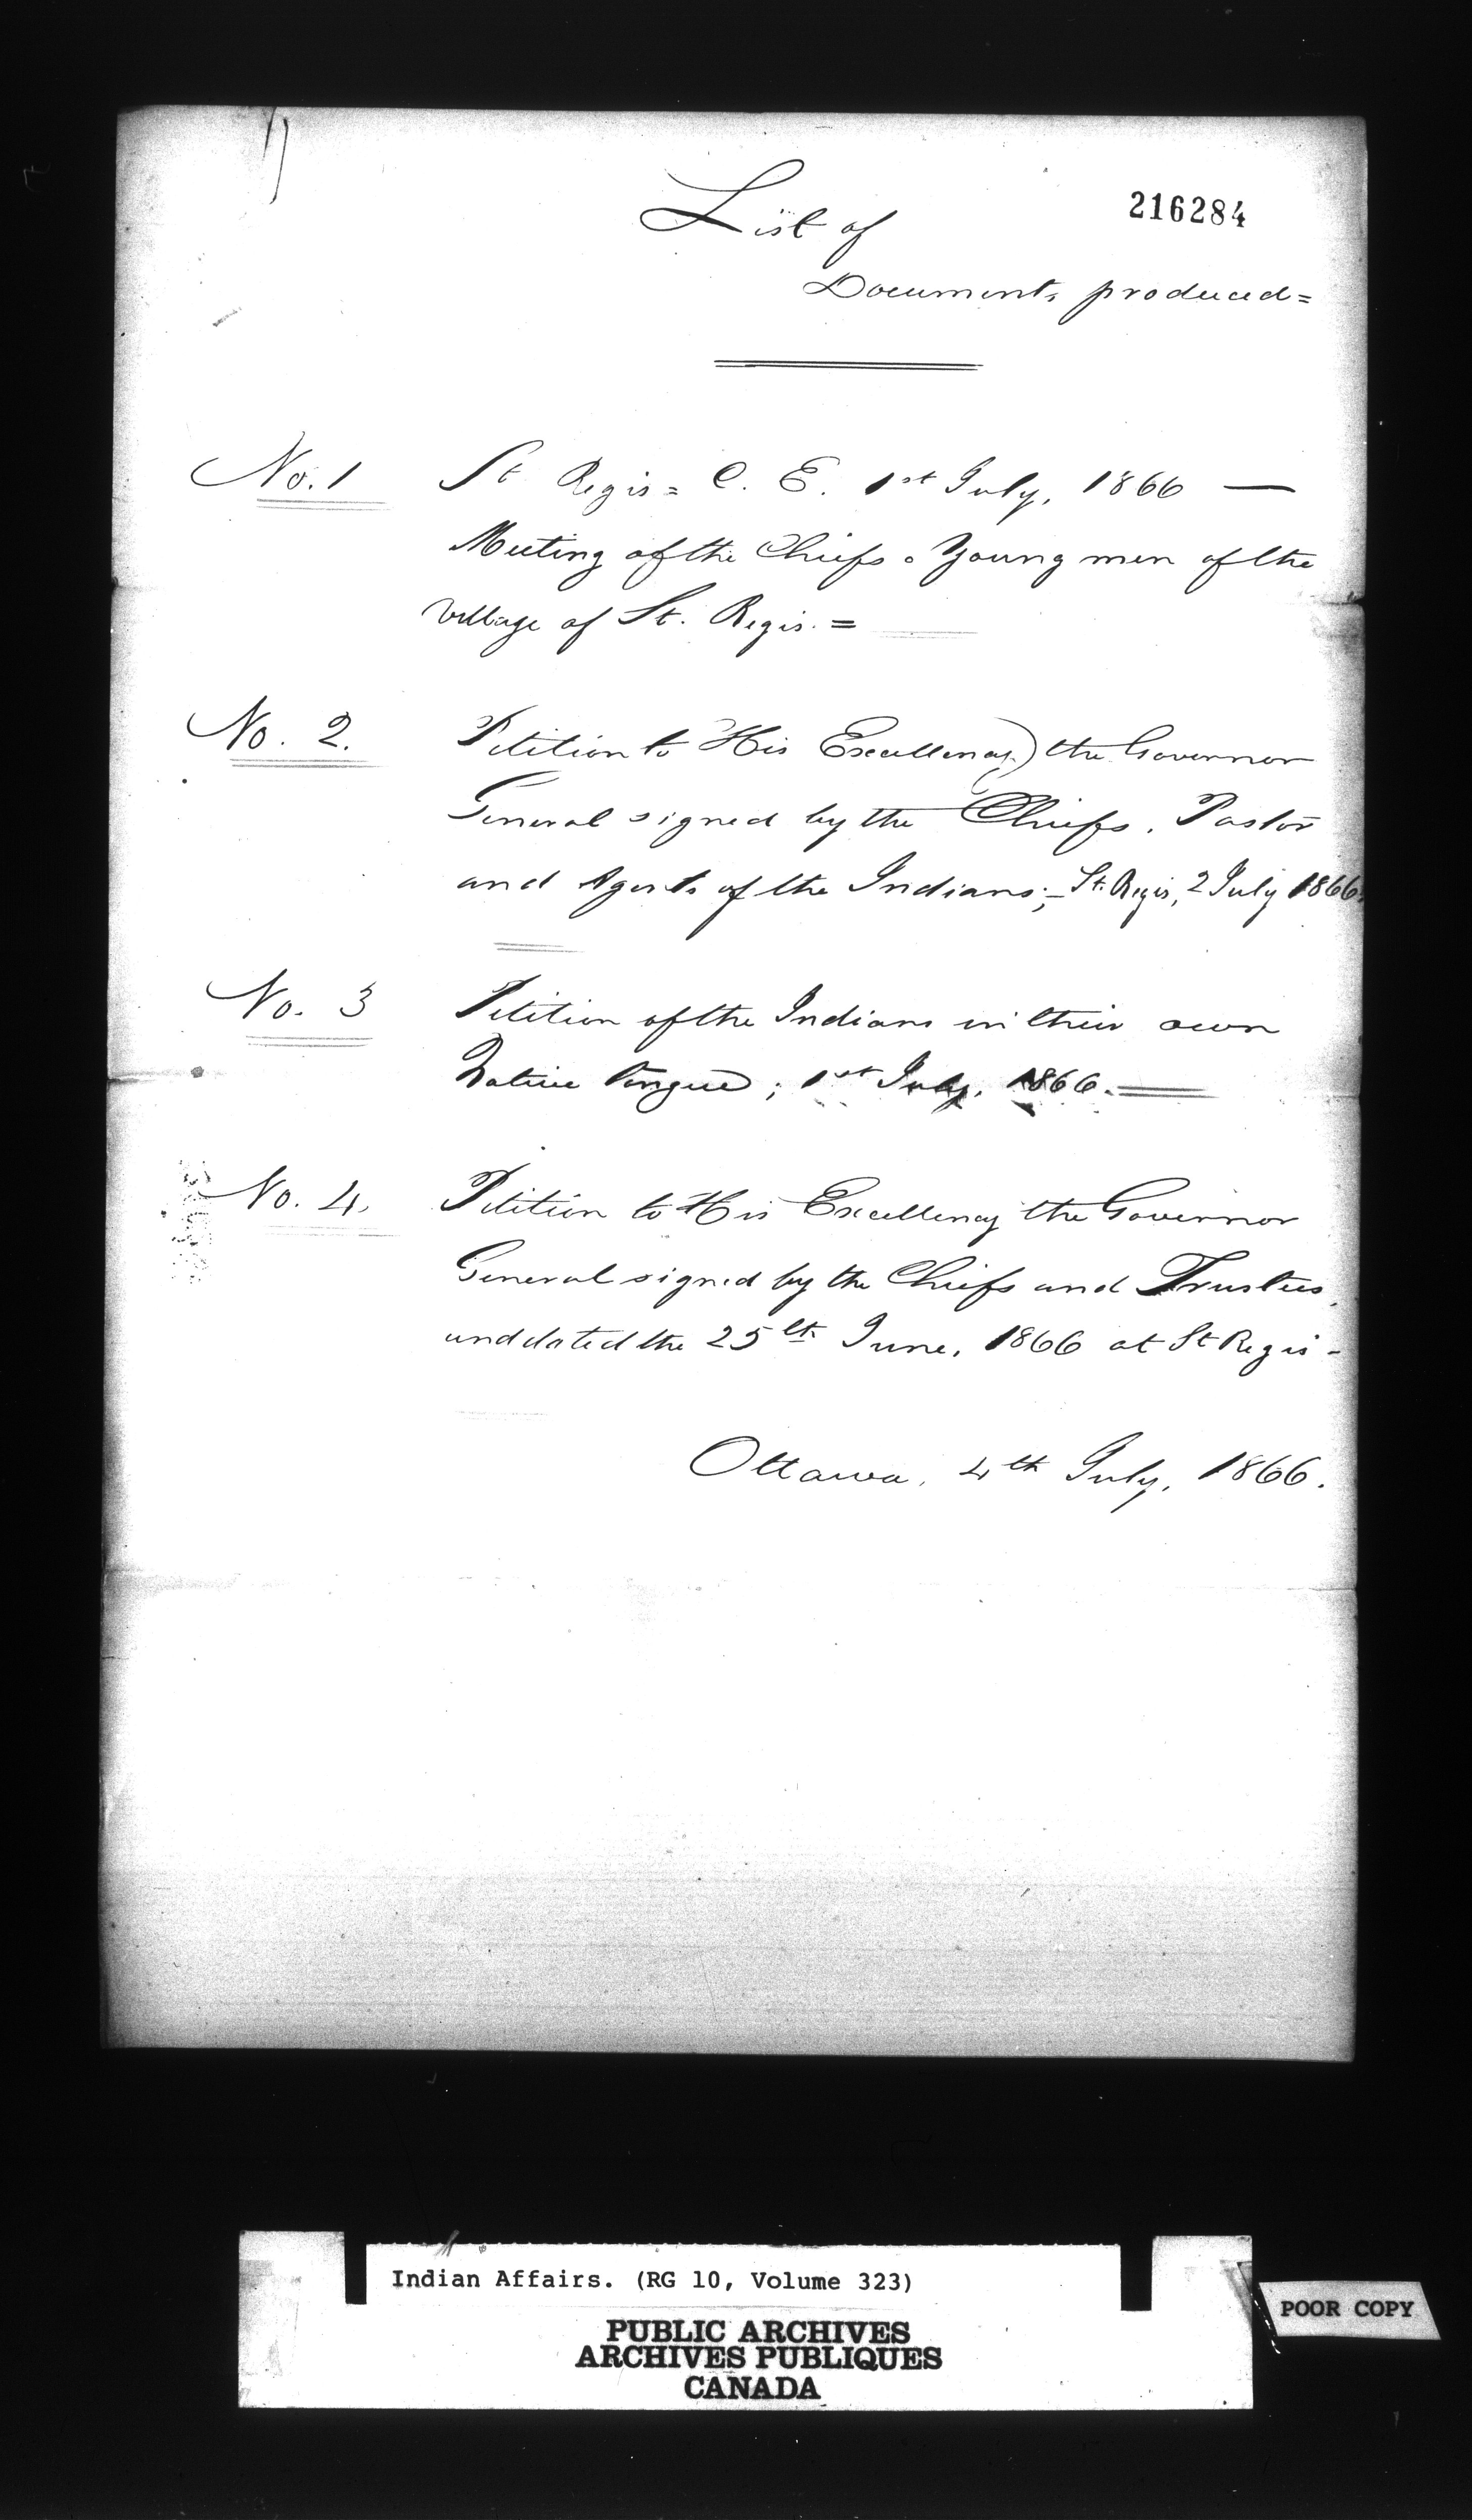 216284
List of
Documents produced=
No. 1 St Regis = C. E. 1st July, 1866 —
Meeting of the Chiefs & Young men of the
village of St. Regis. =
No. 2. Petition to His Excellency the Governor
General signed by the Chiefs, Pastor
and Agents of the Indians; – St. Regis, 2 July 1866.
No. 3 Petition of the Indians in their own
Native tongue; 1st July, 1866. =
No. 4. Petition to His Excellency the Governor
General signed by the Chiefs and Trustees,
and dated the 25th June, 1866 at St Regis -
Ottawa, 4th July, 1866.
Indian Affairs. (RG 10, Volume 323)
PUBLIC ARCHIVES
ARCHIVES PUBLIQUES
CANADA
POOR COPY